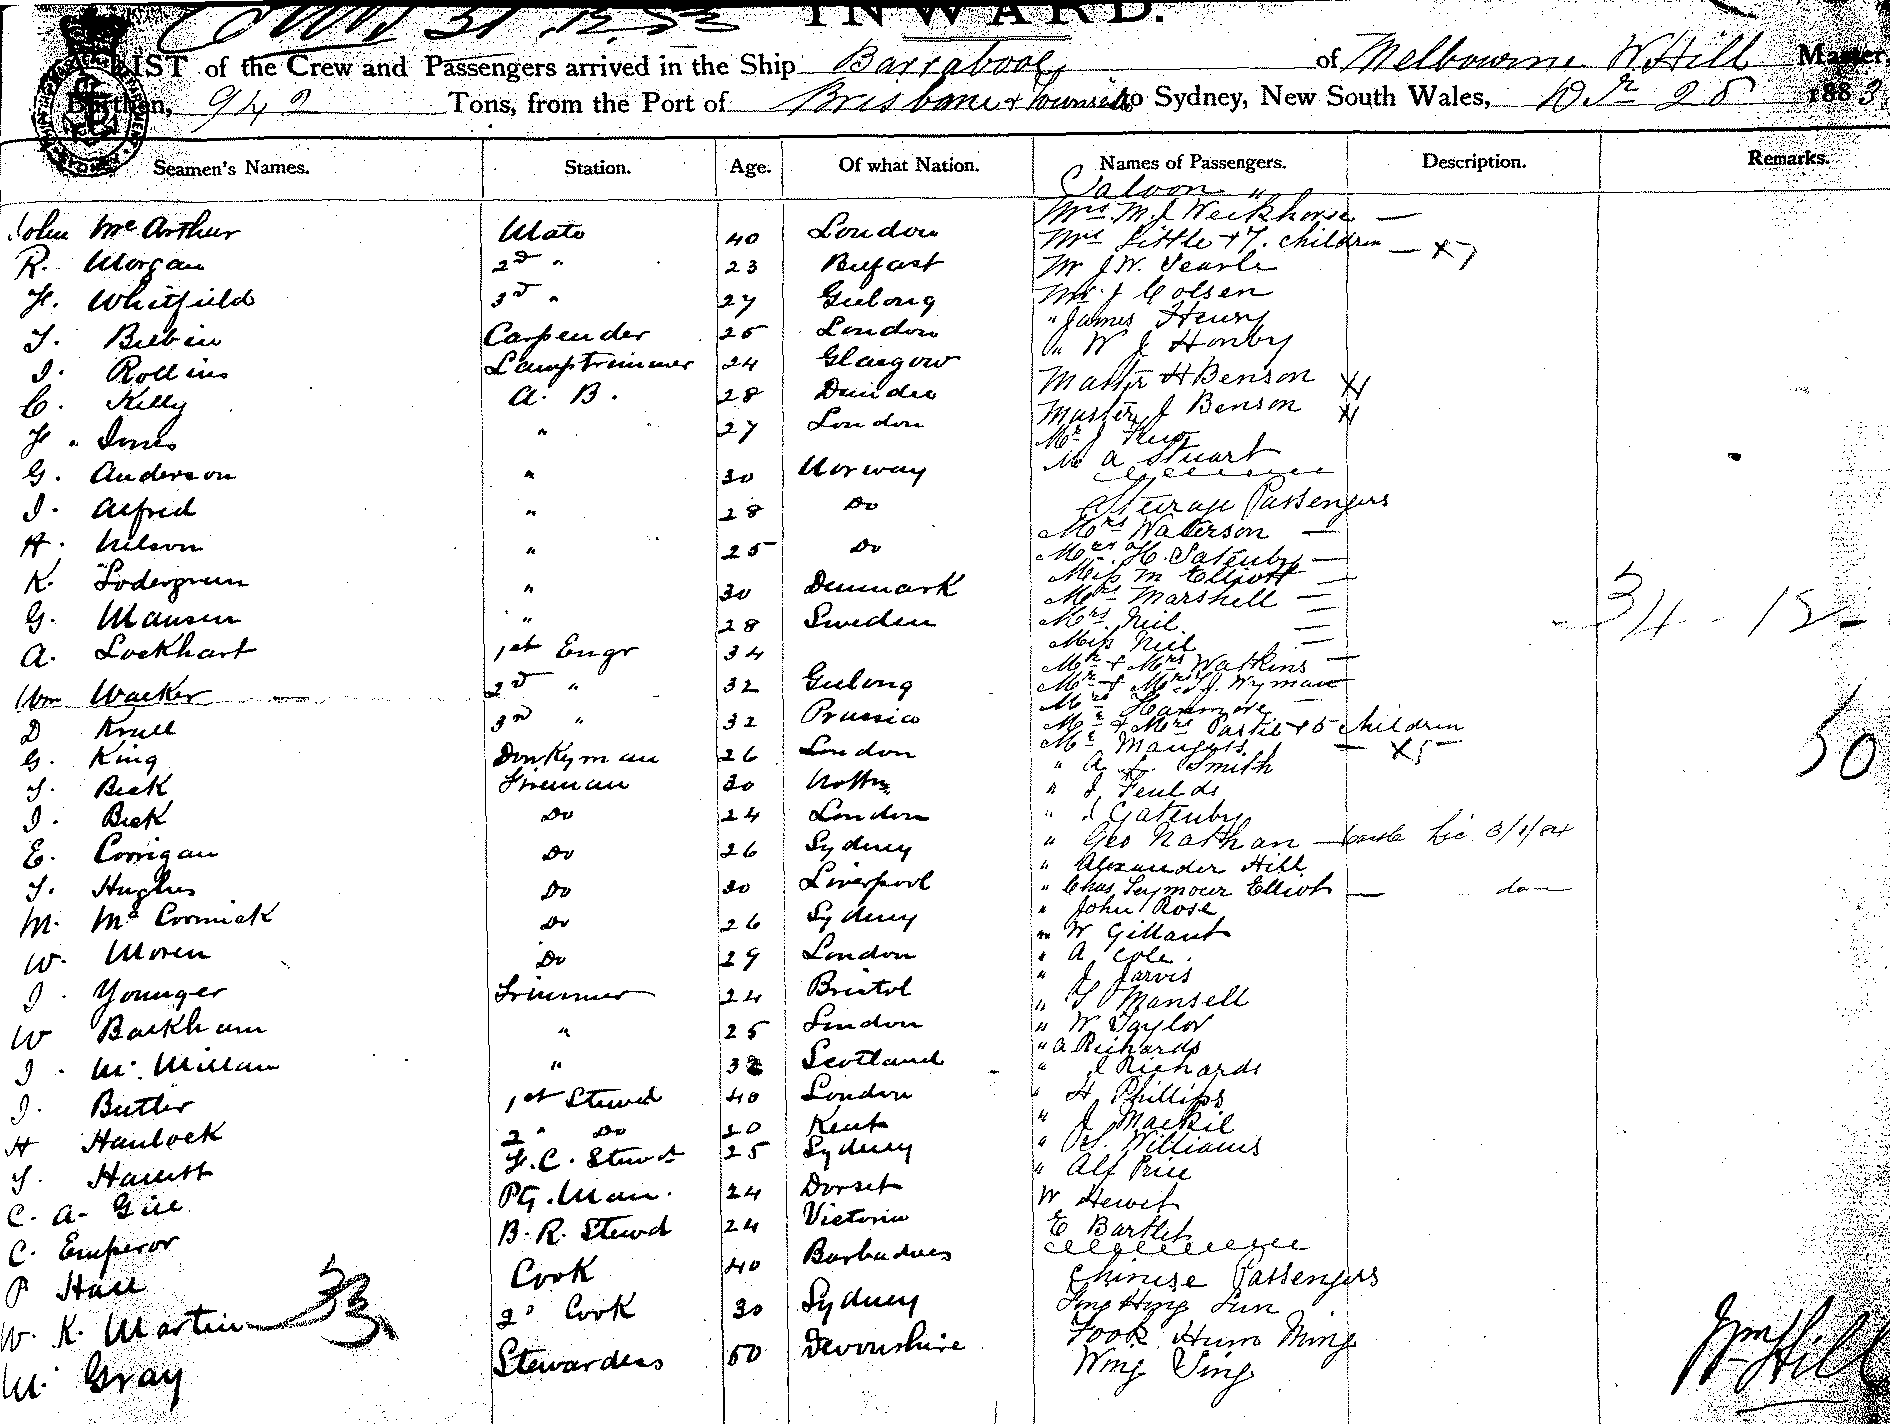 INWARD.
LIST of the Crew and Passengers arrived in the Ship Barrabool of Melbourne W Hill Master
Burthen, 942 Tons, from the Port of Brisbane & Townsville to Sydney, New South Wales, Dr 25 1883
Seamen's Names. Station. Age. Of what Nation. Names of Passengers. Description. Remarks.
Saloon "
John McArthur Mate 40 London
R. Morgan 2nd " 23 Belfast
H. Whitfield 3rd " 27 Geelong
T. Beebin Carpender 25 London
J. Rollins Lamptrimmer 24 Glasgow
C. Kelly A. B. 28 Dundee
H. Jones " 27 London
G. Anderson " 30 Norway
J. Alfred " 28 Do
A. Nilson " 25 Do
K. Sodergreen " 30 Denmark
G. Mansen " 28 Sweden
A. Lockhart 1st Engr 34
Wm Walker 2d " 32 Geelong
D Krull 3rd " 32 Prussia
G. King Donkyman 26 London
T. Beek Fireman 30
J. Beek Do 24 London
E. Corrigan Do 26 Sydney
T. Hughes Do 30 Liverpool
M. McCormick Do 26 Sydney
W. Moren Do 29 London
J. Younger Trimmer 24 Bristol
W Backham " 25 London
J. McMillan " 32 Scotland
J. Butler 1st Stewd 40 London
H Havlock 2 " Do 20 Kent
T. Hewitt F.C. Stewd 25 Sydney
C. A. Gill P.G. Man. 24 Dorset
C. Emperor B. R. Stewd 24 Victoria
P Hall Cook 40 Barbadoes
W. K. Martin 2d Cook 30 Sydney
M. Gray Stewardess 50 Devonshire
33
Mrs M. J Weekhorse —
Mrs Little & 7. children — x7
Mr J. W. Searle
Mr J Colsen
" James Henry
" W J Hornby
Master H Benson X
Master J Benson X
Mr J
Mr A Stuart
Steerage Passengers
Mrs Waterson —
Mrs H. Gatenby —
Miss M Elliott —
Mrs Marshell —
Mrs Neil —
Miss Neil —
Mr & Mrs Watkins —
Mr & Mrs J. Wyman
Mrs Hanmore —
Mr & Mrs Partie & 5 children
Mr Maugers — x5
" A. Smith
" J. Feulds
" J Gatenby
" Geo Nathan — 3/1/84
" Alexander Hill
" Chas Seymour Elliot — do
" John Rose
" W Gillant
" A Cole
" J Jarvis
" T Mansell
" W Taylor
" A Richards
" J Richards
" H Phillips
" J Mackil
" Williams
" Alf Price
W Hewet
E Bartlet
Chinese Passengers
Sun
Fook Hum Ming
Wing Sing
34 - 12
50
Wm Hill